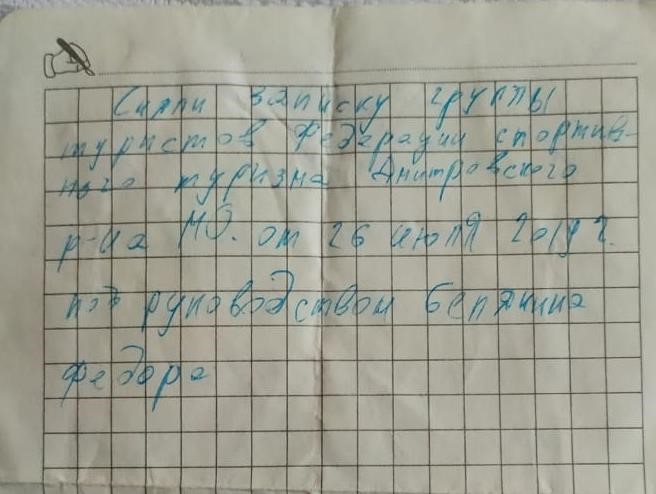 Сняли записку группы
туристов Федерации спортив-
ного туризма Дмитровского
р-на МО. от 26 июля г.
под руководством Белянина
Федора